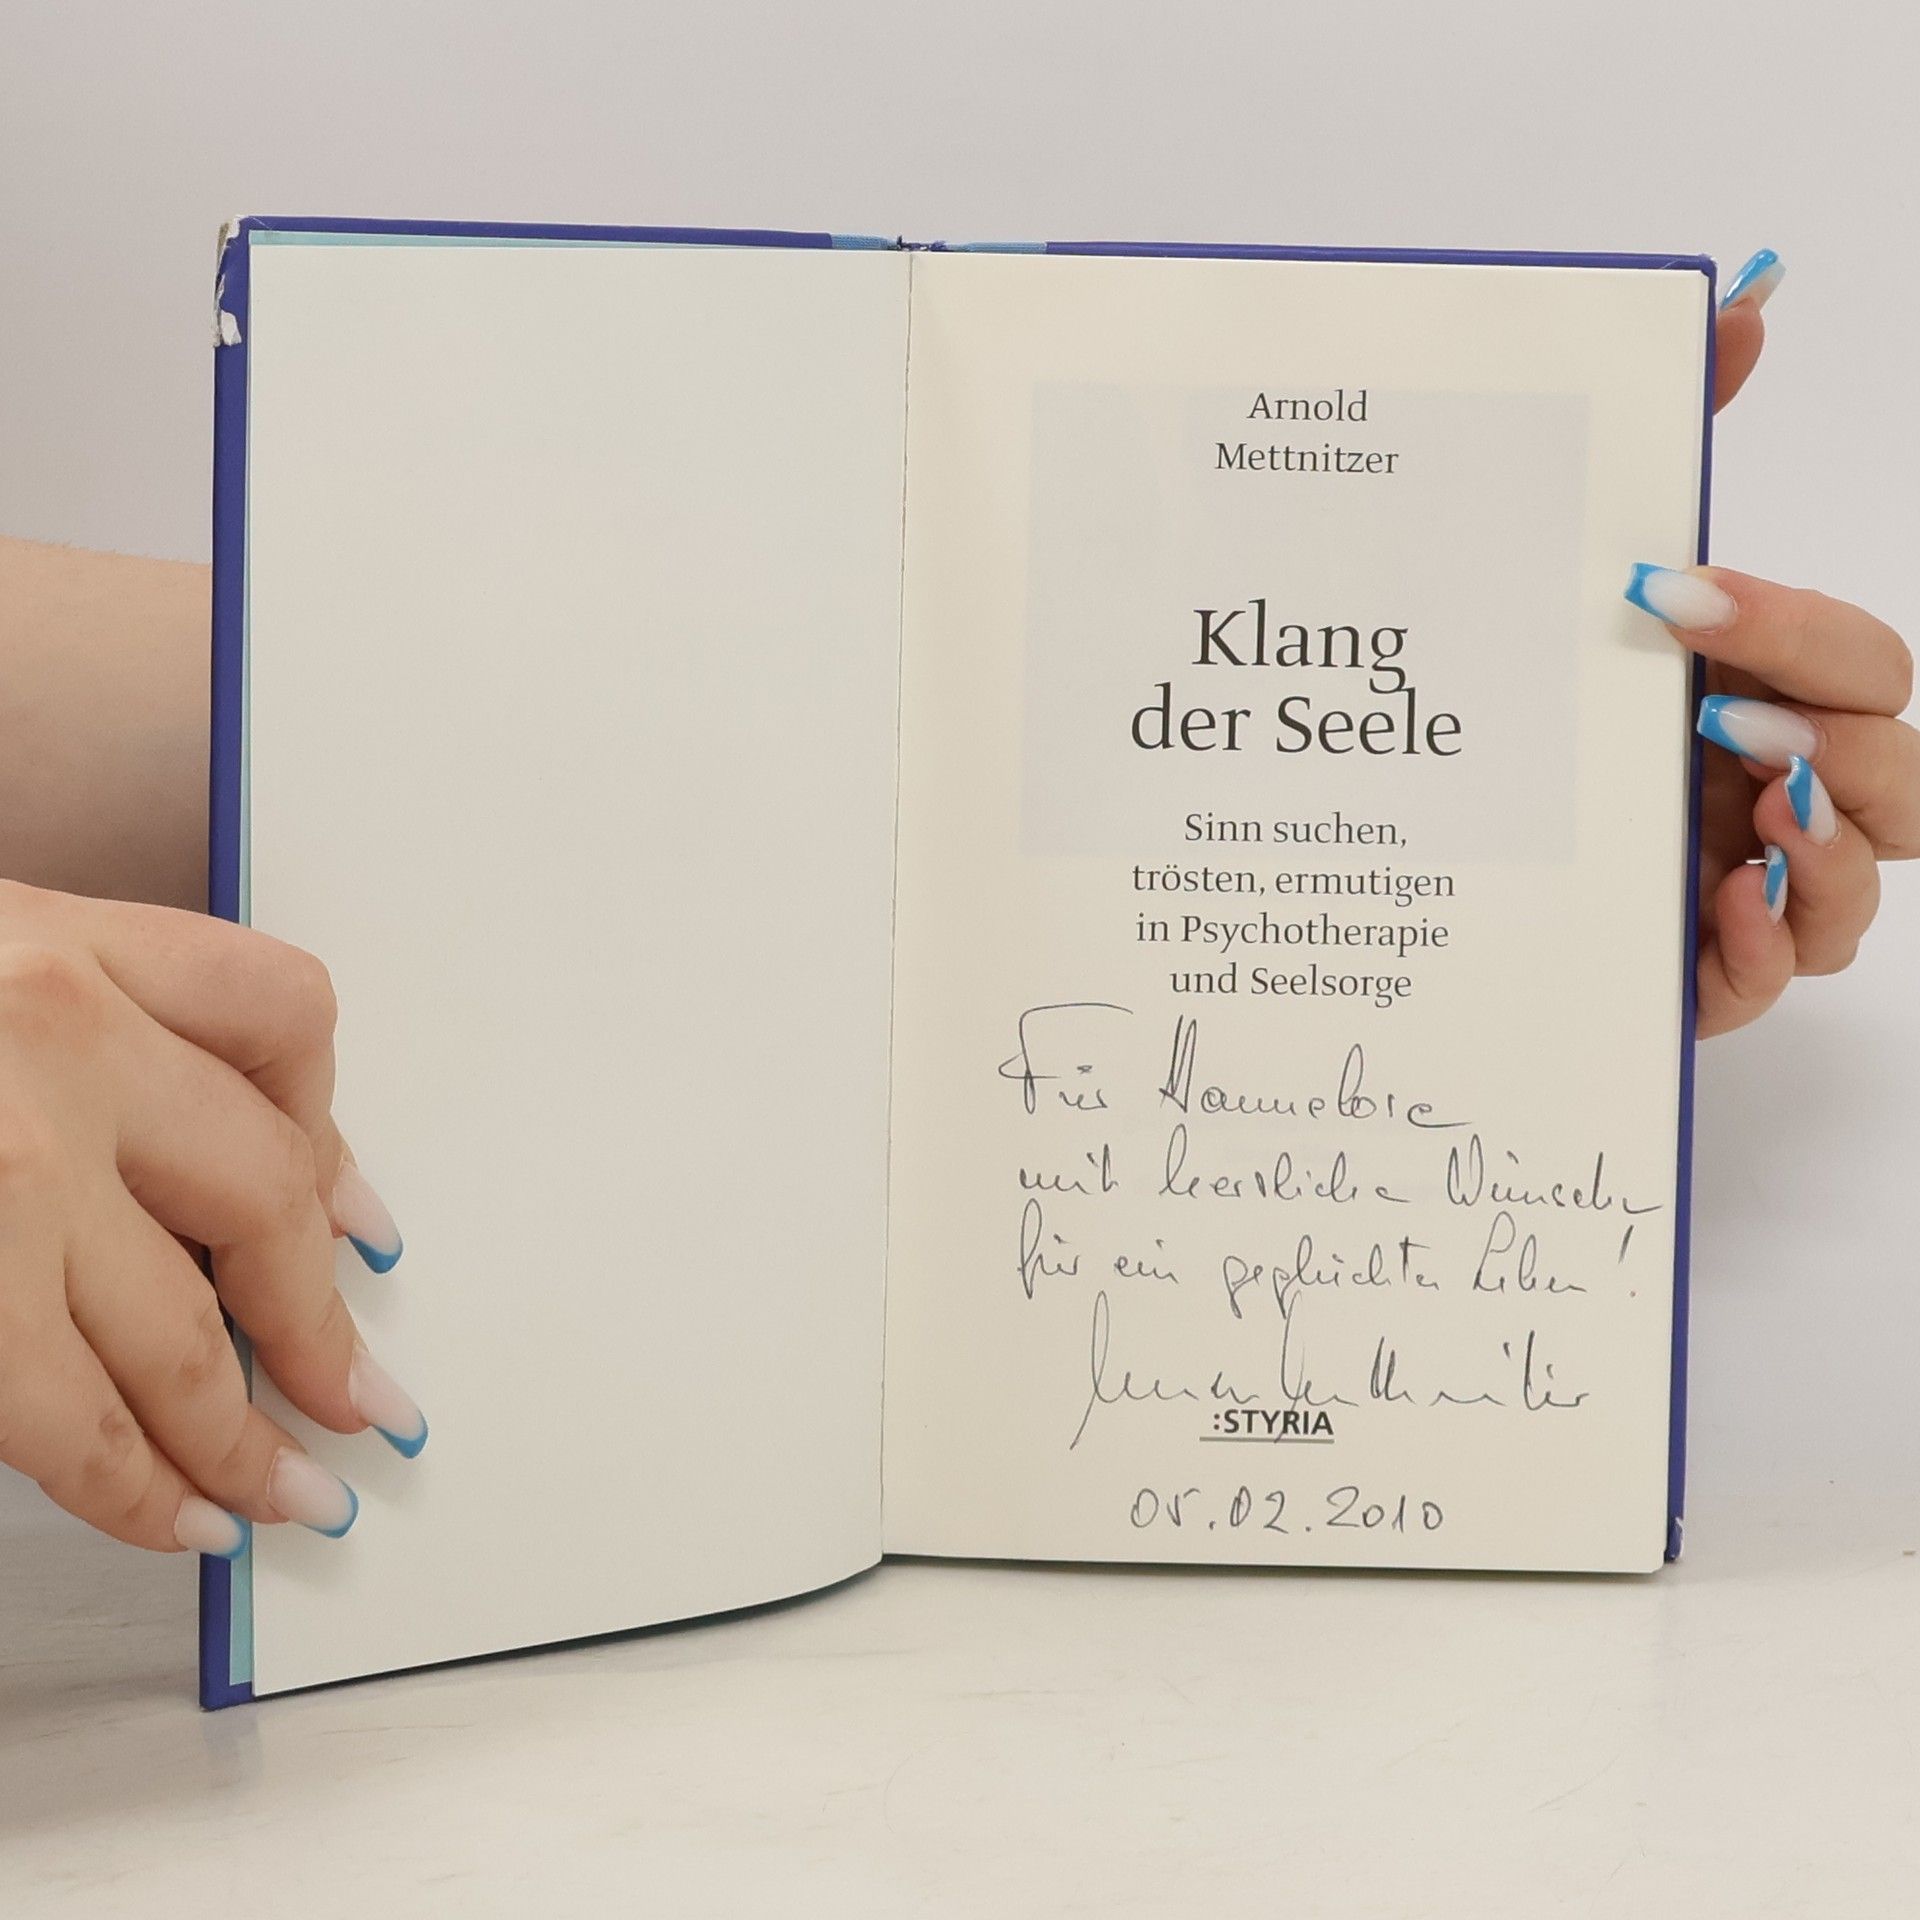 Arnold
Mettnitzer
Klang
der Seele
Sinn suchen,
trösten, ermutigen
in Psychotherapie
und Seelsorge
Für Hannelore
mit herzliche Wünsche
für ein geglückter Leben!
:STYRIA
05.02.2010